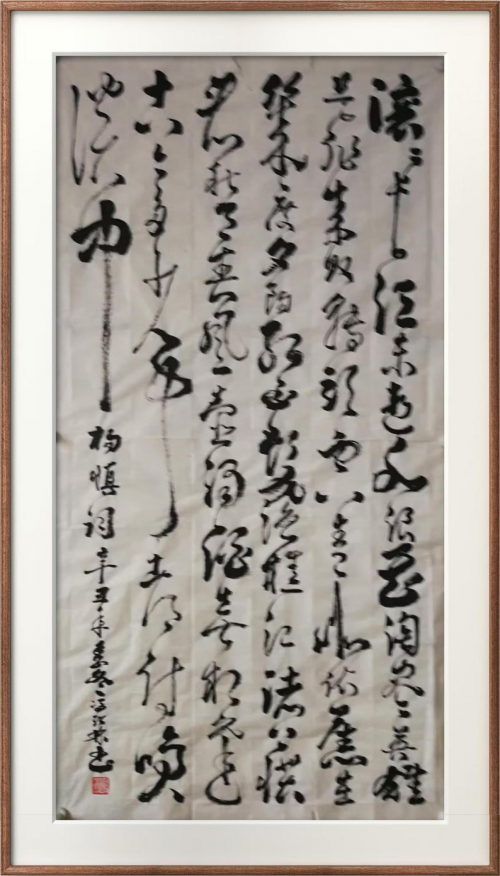 滚滚长江东逝水浪花淘尽英雄
是非成败转头空青山依旧在
几度夕阳红白发渔樵江渚上惯
看秋月春风一壶浊酒喜相逢
古今多少事都付笑
谈中
杨慎词辛丑年书